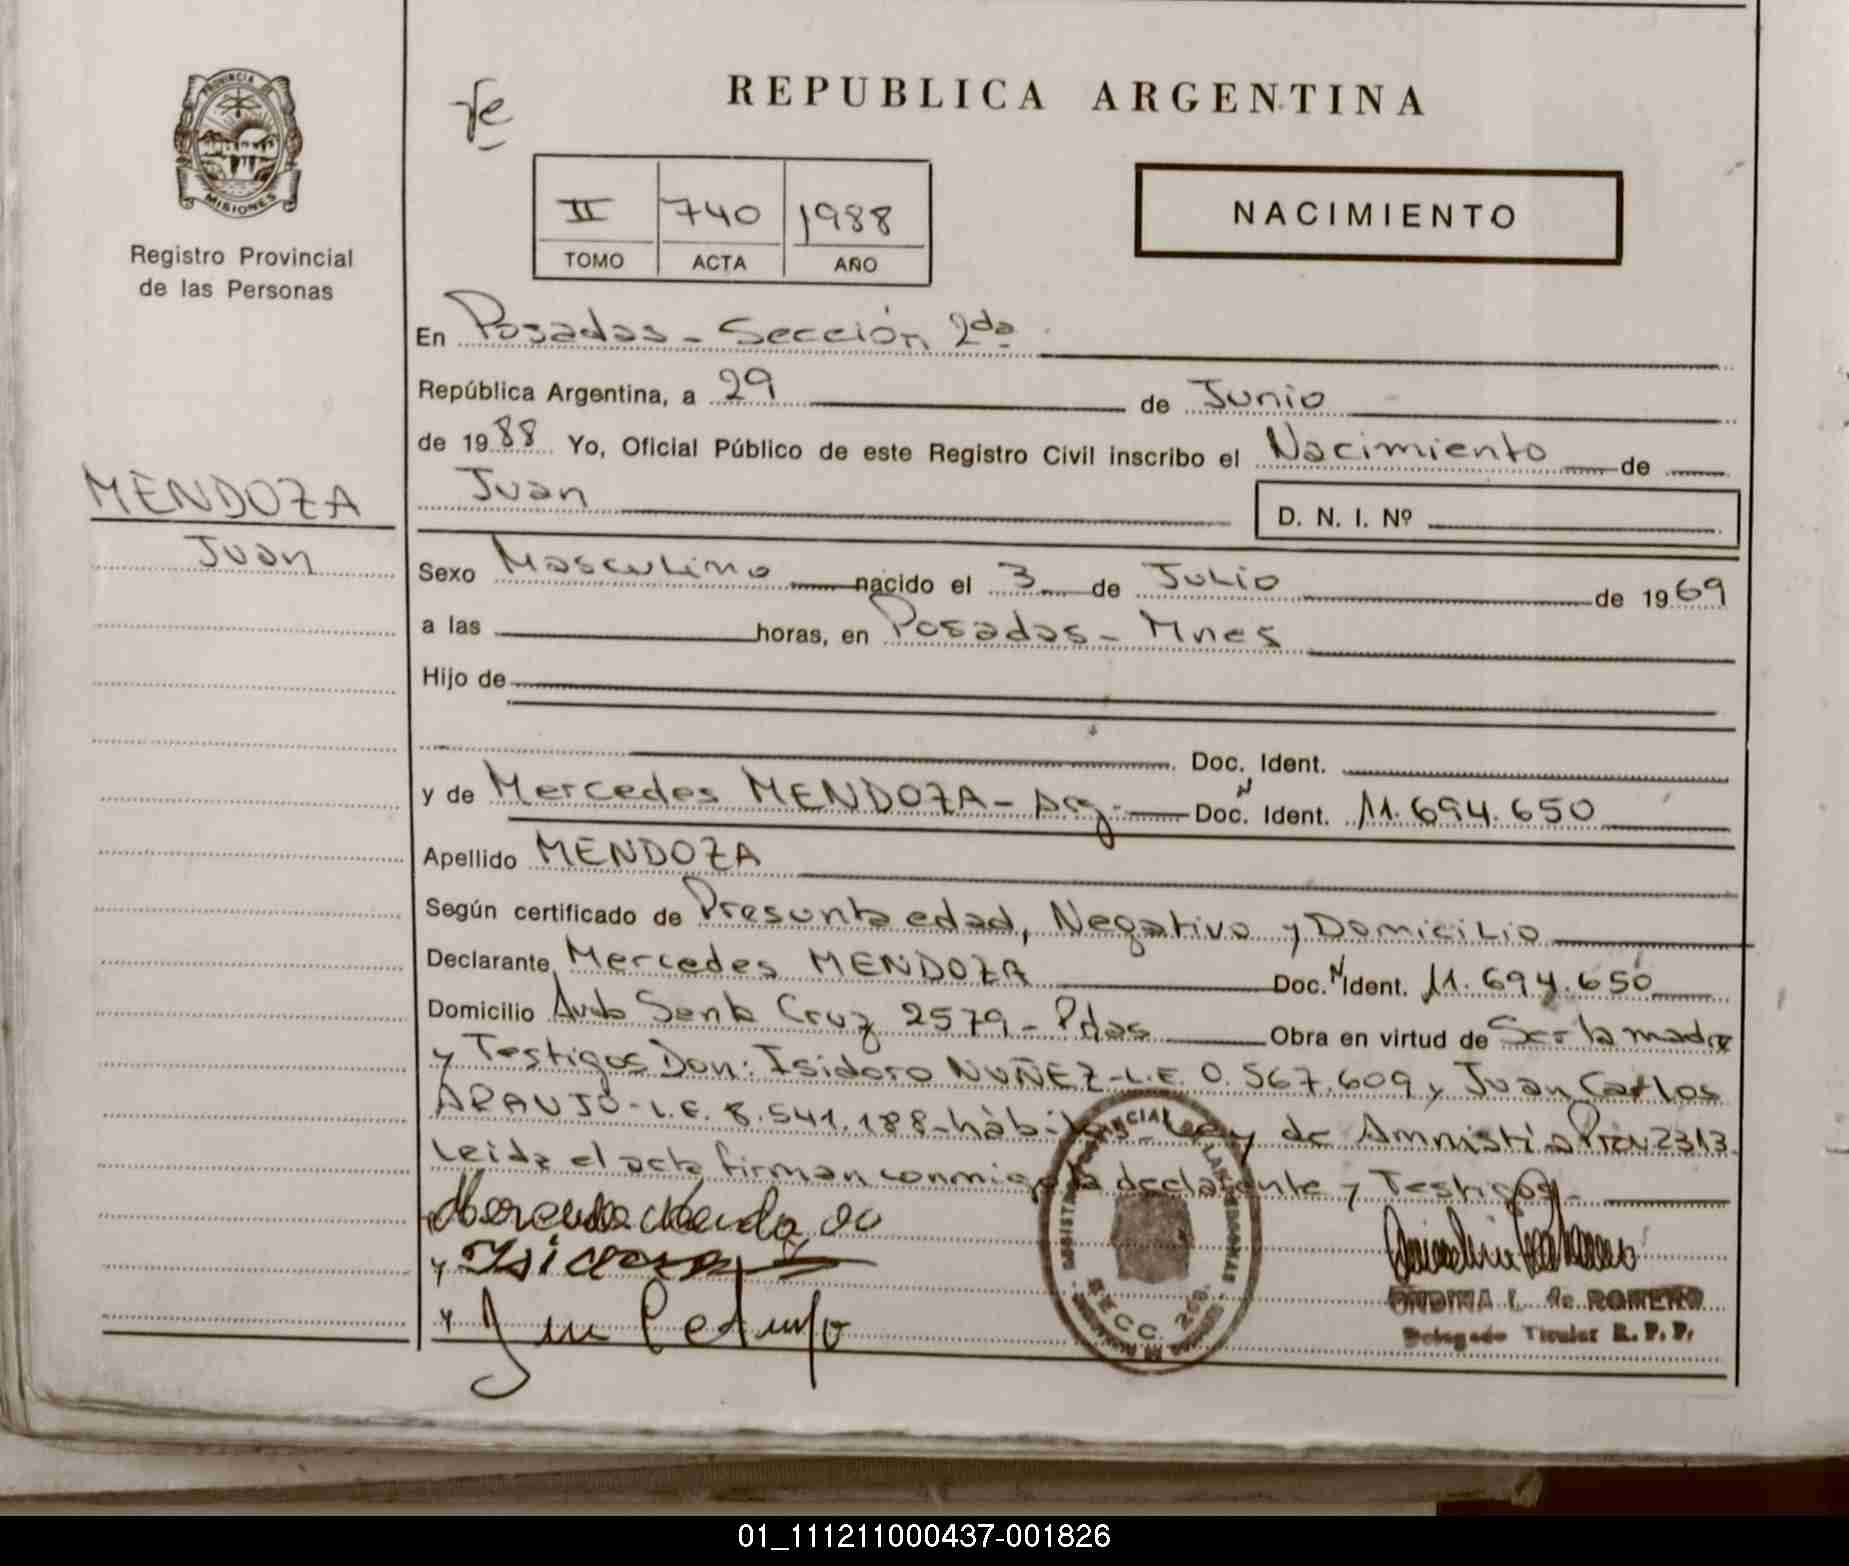 PROVINCIA DE
MISIONES
Registro Provincial
de las Personas
MENDOZA
Juan
REPUBLICA ARGENTINA
II 740 1988
TOMO ACTA AÑO
NACIMIENTO
En Posadas - Sección 2da
República Argentina, a 29 de Junio
de 1988 Yo, Oficial Público de este Registro Civil inscribo el Nacimiento de
Juan D. N. I. Nº
Sexo Masculino nacido el 3 de Julio de 1969
a las horas, en Posadas - Mnes
Hijo de
Doc. Ident.
y de Mercedes MENDOZA - Arg. Doc. N Ident. 11.694.650
Apellido MENDOZA
Según certificado de Presunta edad, Negativo y Domicilio
Declarante Mercedes MENDOZA Doc. N Ident. 11.694.650
Domicilio Avda Santa Cruz 2579 - Pdas Obra en virtud de Ser la madre
y Testigos Don: Isidoro NUÑEZ - L.E. 0.567.609 y Juan Carlos
ARAUJO - L.E. 8.541.188 - hábiles - Ley de Amnistía Prov 2313
Leida el acta firman conmigo la declarante y Testigos -
y Isidoro
y
SECC. 2da.
ONDINA L. de ROMERO
Delegado Titular R. P. P.
01_111211000437-001826